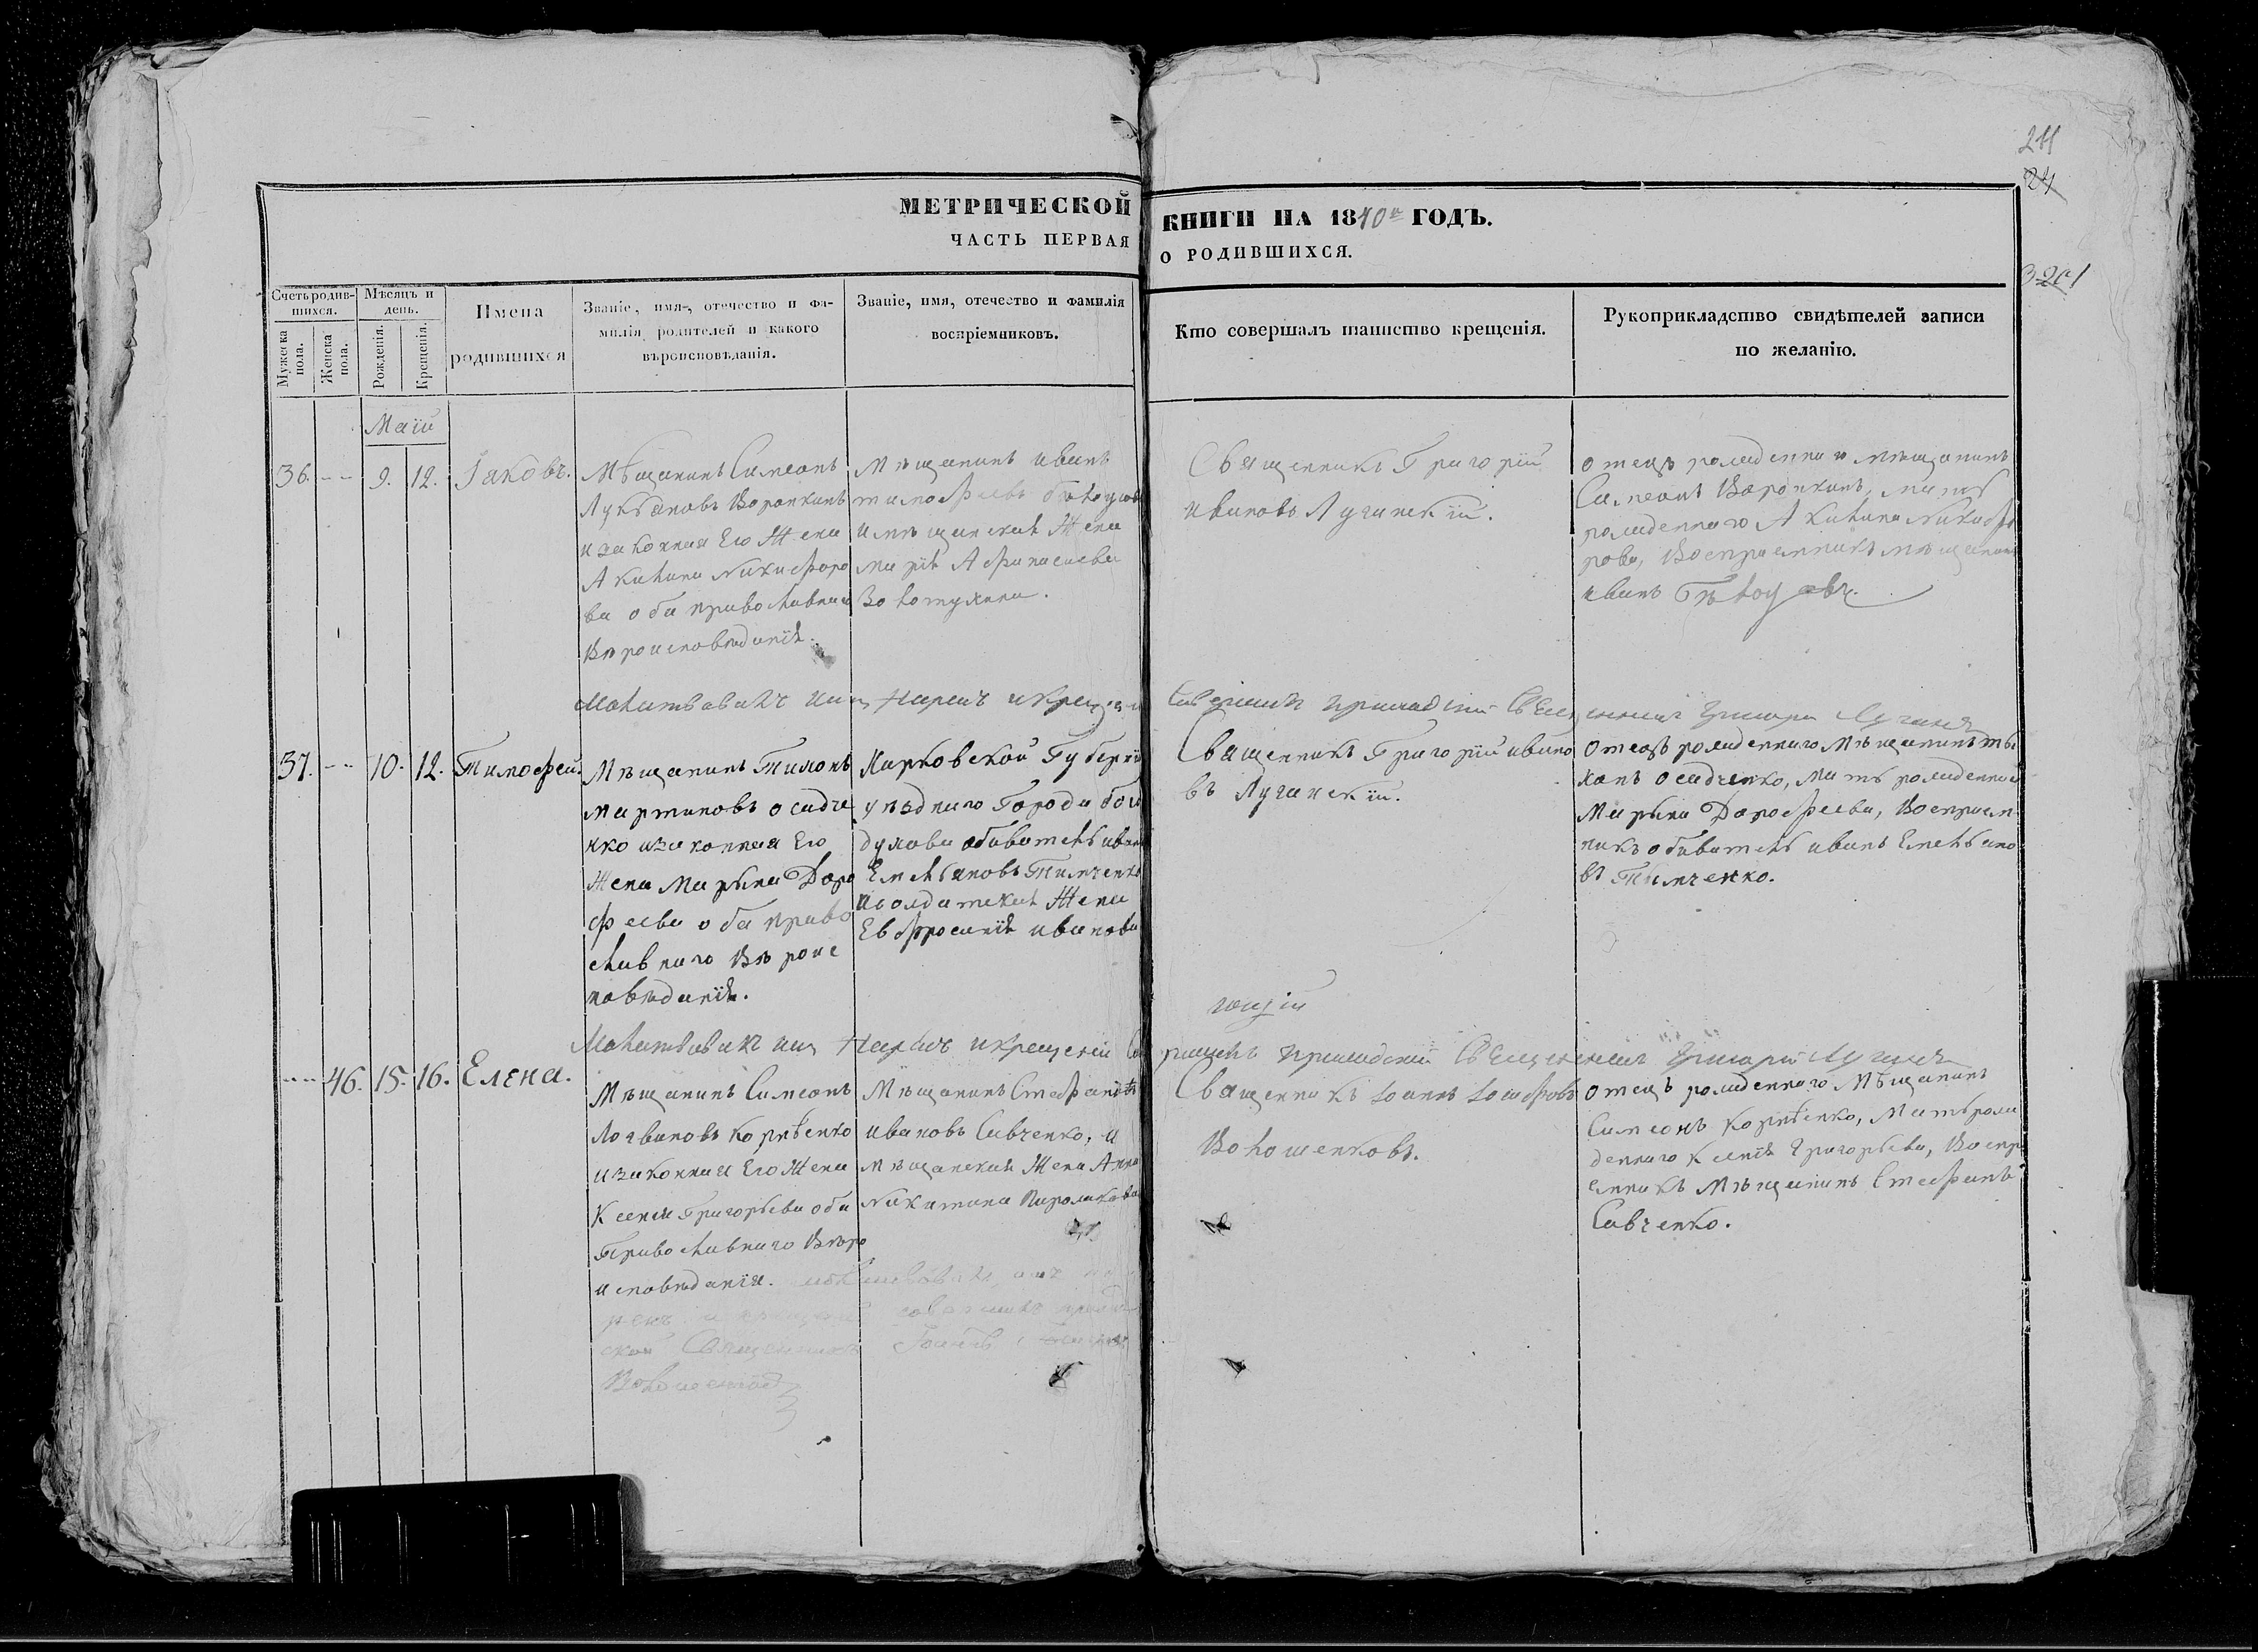 211
24
МЕТРИЧЕСКОЙ КНИГИ НА 1840й ГОДЪ.
ЧАСТЬ ПЕРВАЯ О РОДИВШИХСЯ.
Счетъ родив-
шихся.
Мужеска
пола.
Женска
пола.
Мѣсяцъ и
день.
Рожденія.
Крещенія.
Имена
родившихся
Званіе, имя, отечество и фа-
милія родителей и какого
вѣроисповѣданія.
Званіе, имя, отечество и фамилія
воспріемниковъ.
Кто совершалъ таинство крещенія.
Рукоприкладство свидѣтелей записи
по желанію.
Маій
36. -- 9. 12. Іаковъ.
Мѣщанинъ Симеонъ
Лукьяновъ Воронкинъ
и законная Его Жена
Акилина Никифоро
ва оба православнаго
Вѣроисповѣданія.
Мѣщанинъ иванъ
тимофеевъ
и мѣщанская Жена
марія Афанасиева
Золотухина.
Священникъ Григорій
ивановъ Лучинскій.
отецъ рожденнаго мѣщанинъ
Симеонъ Воронкинъ, мать
рожденнаго Акилина Никифо
рова, Восприемникъ мѣщанинъ
иванъ
Молитвовалъ имя Нарекъ и креще
Совершилъ приходскій Священникъ Григорій
37. -- 10. 12. Тимофей.
Мѣщанинъ Тихонъ
мартиновъ осадче
нко и законная Его
Жена Марына Доро
феева оба право
славнаго Вѣроис
повѣданія.
Харковской Губерніи
уѣзднаго Города бого
духова обыватель иванъ
Емельяновъ Тимченко
и солдатская Жена
Евфросинія иванова
Священникъ Григорій ивано
въ Лучинскій.
отецъ рожденнаго Мѣщанинъ ти
хонъ осадченко, мать рожденнаго
Марына Дорофеева, Восприем
никъ обыватель иванъ Емельяно
въ Тимченко.
Молитвовалъ имя Нарекъ и крещеніи
приходскій Священникъ Григорій
-- 46. 15. 16. Елена.
Мѣщанинъ Симеонъ
Логвиновъ Корнѣенко
и законная Его Жена
Ксенія Григорьева оба
Православнаго Вѣро
исповѣданія.
Мѣщанинъ Стефанъ
ивановъ Савченко, и
мѣщанская Жена Анна
Никитина
Священникъ Іоаннъ Іосифовъ
Волошенковъ.
отецъ рожденнаго Мѣщанинъ
Симеонъ Корнѣенко, Мать рож
деннаго Ксенія Григорьева, Воспри
емникъ Мѣщанинъ Стефанъ
Савченко.
совершилъ
Священникъ Іоаннъ